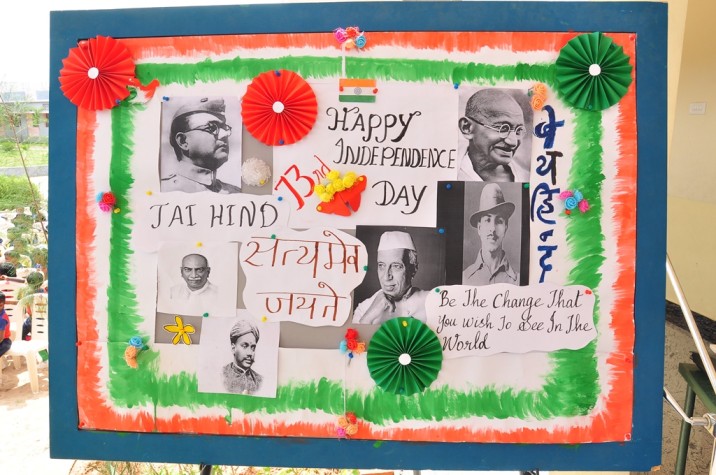 HAPPY
INDEPENDENCE
73nd
DAY
JAI HIND
सत्यमेव
जयते
Be The Change That
You wish To See In The
World